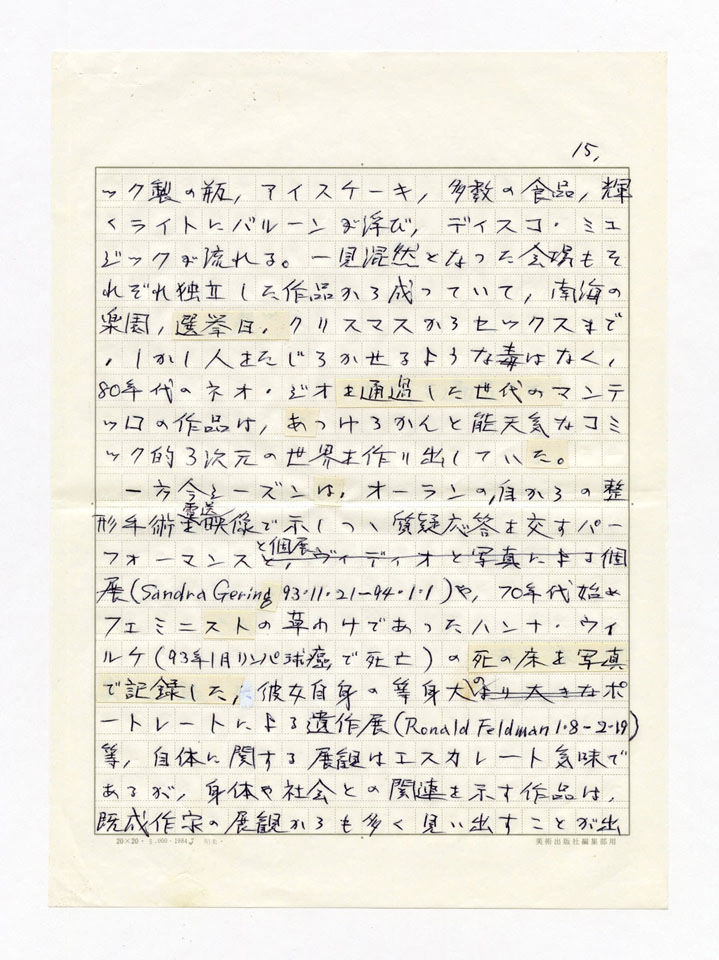 15,
ック製の瓶，アイスケーキ，多数の食品，輝
くライトにバルーンが浮び，ディスコ・ミュ
ジックが流れる。一見混然となった会場もそ
れぞれ独立した作品から成っていて，南海の
楽園，選挙日，クリスマスからセックスまで
，しかし人をたじろがせるような毒はなく，
80年代のネオ・ジオを通過した世代のマンテ
ッロの作品は，あっけらかんと能天気なコミ
ック的3次元の世界を作り出していた。
一方今シーズンは，オーランの，自からの整
形手術を電送映像で示しつつ質疑応答を交すパー
フォーマンスと個展と，ヴィディオと写真による個
展(Sandra Gering 93・11・21-94・1・1)や，70年代始め
フェミニストの草わけであったハンナ・ウィ
ルケ(93年1月リンパ球癌で死亡)の死の床を写真
で記録した，彼女自身の等身大のより大きなポ
ートレートによる遺作展(Ronald Feldman 1・8-2・19)
等，自体に関する展観はエスカレート気味で
あるが，身体や社会との関連を示す作品は，
既成作家の展観からも多く見い出すことが出
20×20・1,000・1984.J
美術出版社編集部用